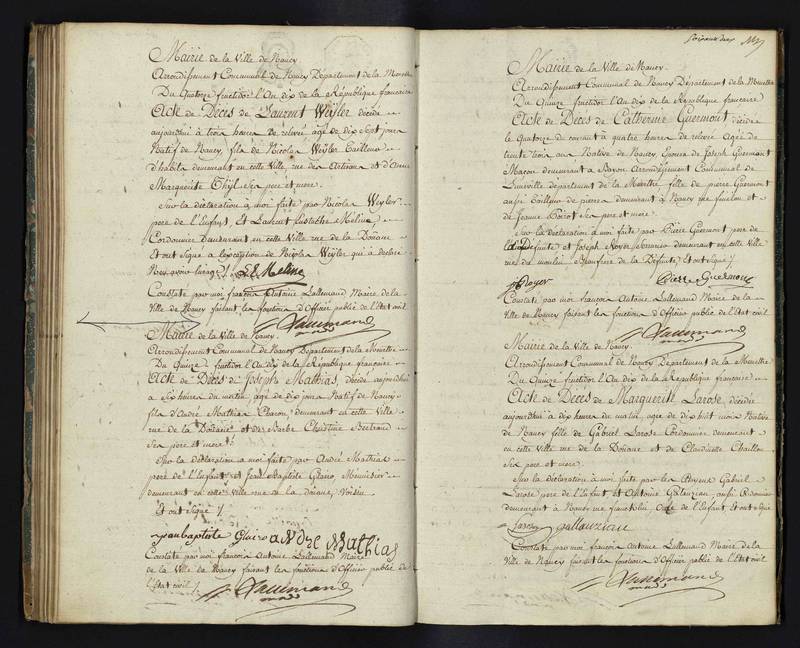 Mairie de la Ville de Nancy
Arrondissement Communal de Nancy Département de la Meurthe
Du Quatorze fructidor l'An dix de la République française
Acte de Décès de Laurent Weyler décédé
aujourdhui à trois heures de relevée agé de dix Sept jours
Natif de Nancy, fils de Nicolas Weyler Tailleur
d'habits demeurant en cette Ville rue des Artisans et d'Anne
Marguerite Thyl Ses pere et mere.
Sur la déclaration à moi faite par Nicolas Weyler
pere de l'Enfant, Et Laurent Eustache Meline
Cordonnier demeurant en cette Ville rue de la Douane
Et ont Signé à l'exception de Nicolas Weyler qui a déclaré
L E Meline
Constaté par moi françois Antoine Lallemand Maire de la
Ville de Nancy faisant les fonctions d'Officier public de l'état civil
Lallemand
Mairie de la Ville de Nancy.
Arrondissement Communal de Nancy Département de la Meurthe
Du Quinze fructidor l'An dix de la République française
Acte de Décès de Joseph Mathias, décédé aujourdhui
à Six heures du matin, agé de dix jours Natif de Nancy
fils d'André Mathias Charon, demeurant en cette Ville
rue de la Douane et de Barbe Christine Bertrand
Ses pere et mere
Sur la déclaration à moi faite par André Mathias
pere de l'Enfant, et Jean Baptiste Menuisier
demeurant en cette Ville rue de la Douane, Voisin
Et ont Signé
jean baptiste André Mathias
Constaté par moi françois Antoine Lallemand Maire
de la Ville de Nancy faisant les fonctions d'Officier public de
l'état civil
Lallemand
Mairie de la Ville de Nancy.
Arrondissement Communal de Nancy Département de la Meurthe
Du Quinze fructidor l'An dix de la République française
Acte de Décès de Catherine Guermont décédée
le Quatorze du courant à quatre heures de relevée Agée de
trente trois ans Native de Nancy, Epouse de Joseph Guermont
Macon demeurant à Bayon Arrondissement Communal de
Luneville département de la Meurthe fille de pierre Guermont
aussi tailleur de pierre demeurant à Nancy rue et
de Jeanne Ses pere et mere.
Sur la déclaration à moi faite par Pierre Guermont pere de
la Défunte et Joseph Noyer demeurant en cette Ville
rue du moulin Beaufrere de la Défunte, et ont Signé
J Noyer Pierre Guermont
Constaté par moi françois Antoine Lallemand Maire de la
Ville de Nancy faisant les fonctions d'Officier public de l'état civil
Lallemand
Mairie de la Ville de Nancy.
Arrondissement Communal de Nancy Département de la Meurthe
Du Quinze fructidor l'An dix de la République française
Acte de Décès de Marguerite Larose, décédée
aujourdhui à dix heures du matin, agée de dix huit mois Native
de Nancy fille de Gabriel Larose Cordonnier demeurant
en cette Ville rue de la Douane et de Claudinette Chaillon
Ses pere et mere.
Sur la déclaration à moi faite par les Gabriel
Larose pere de l'Enfant et Antoine aussi Cordonnier
demeurant à Nancy rue de l'Enfant, Et ont Signé
Larose
Constaté par moi françois Antoine Lallemand Maire de la
Ville de Nancy faisant les fonctions d'Officier public de l'état civil
Lallemand